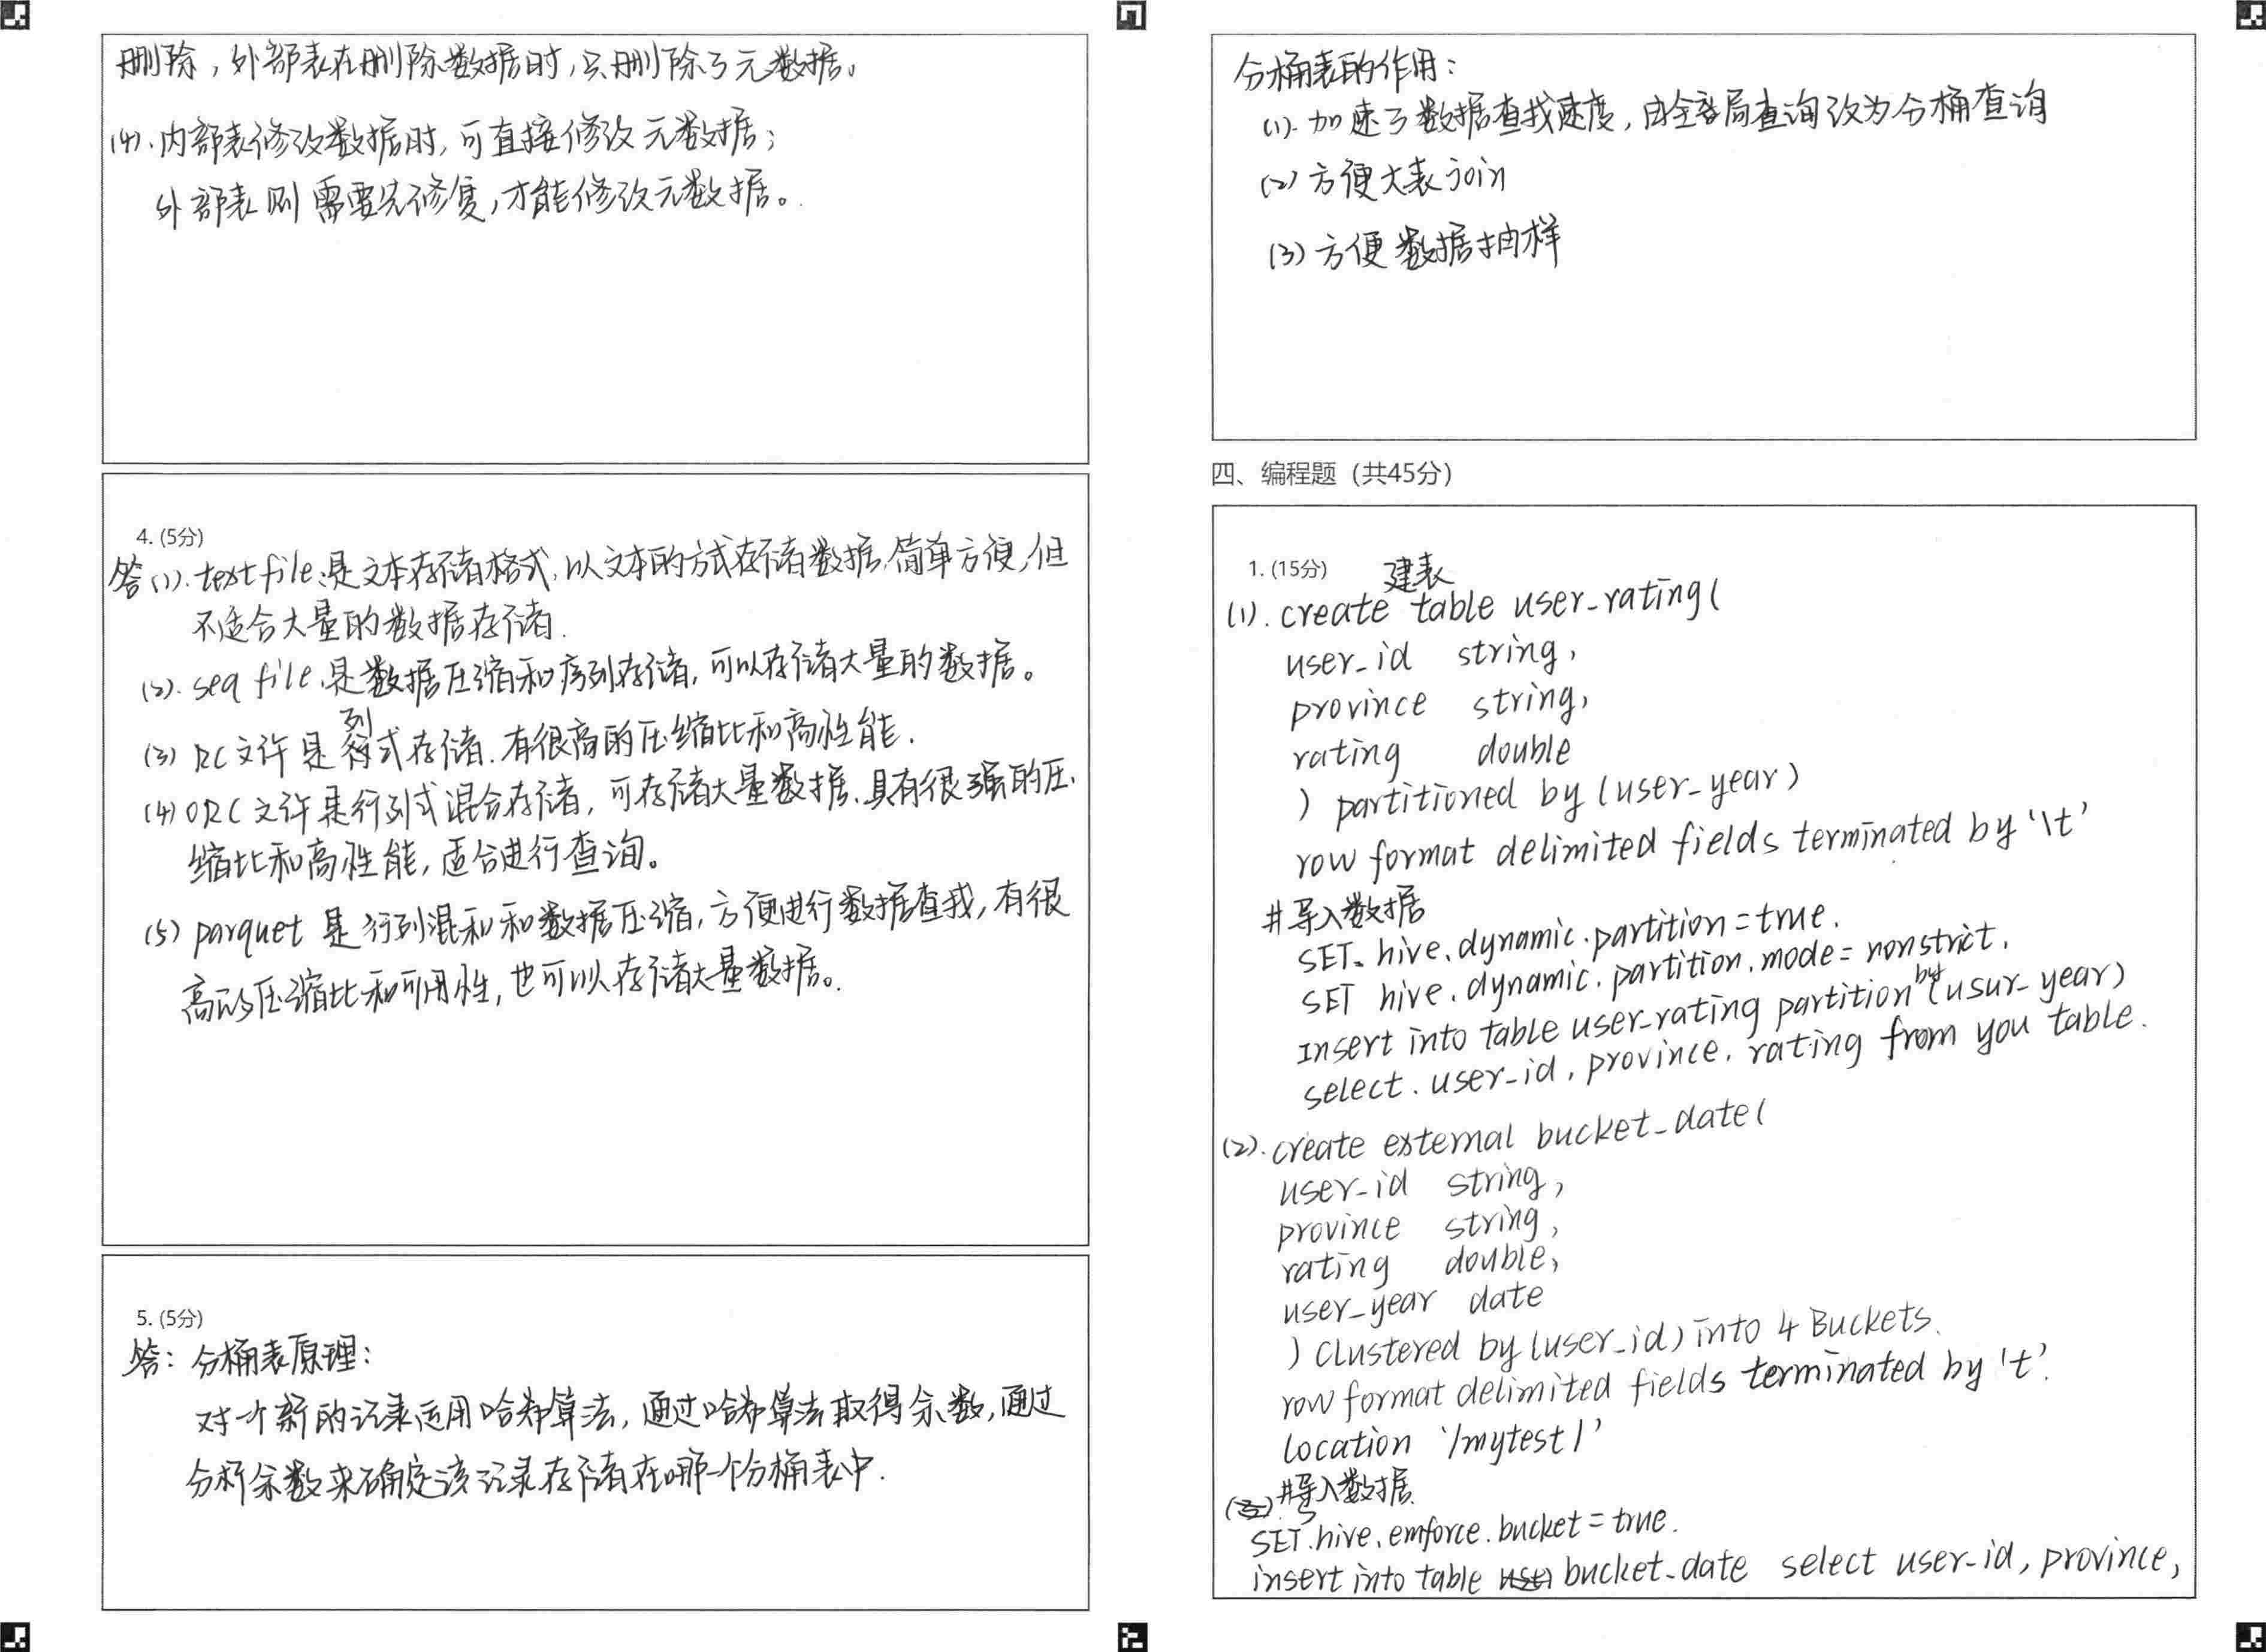 删除，外部表在删除数据时，只删除了元数据。
(4).内部表修改数据时，可直接修改元数据；
外部表则需要先修复，才能修改元数据。
4. (5分)
答(1). textfile:是文本存储格式,以文本的方式存储数据,简单方便,但
不适合大量的数据存储.
(2). seq file,是数据压缩和序列存储,可以存储大量的数据。
(3) RC文件是列式存储.有很高的压缩比和高性能.
(4) ORC文件是行列式混合存储,可存储大量数据,具有很强的压
缩比和高性能,适合进行查询。
(5) parquet 是行列混和和数据压缩,方便进行数据查找,有很
高的压缩比和可用性,也可以存储大量数据。
5. (5分)
答：分桶表原理：
对一个新的记录运用哈希算法,通过哈希算法取得余数,通过
分析余数来确定该记录存储在哪一个分桶表中.
分桶表的作用：
(1).加速了数据查找速度,由全局查询改为分桶查询
(2)方便大表join
(3)方便数据抽样
四、编程题（共45分）
1. (15分) 建表
(1). create table user_rating(
user_id string,
province string,
rating double
) partitioned by (user_year)
row format delimited fields terminated by '\t'
#导入数据
SET. hive.dynamic.partition=true.
SET hive.dynamic.partition.mode=nonstrict.
Insert into table user_rating partition by (usur_year)
select. user_id, province, rating from you table.
(2). create external bucket_date(
user_id string,
province string,
rating double,
user_year date
) Clustered by (user_id) into 4 Buckets.
row format delimited fields terminated by 't'.
location '/mytest/'
#导入数据.
SET.hive.emforce.bucket=true.
insert into table bucket_date select user_id, province,